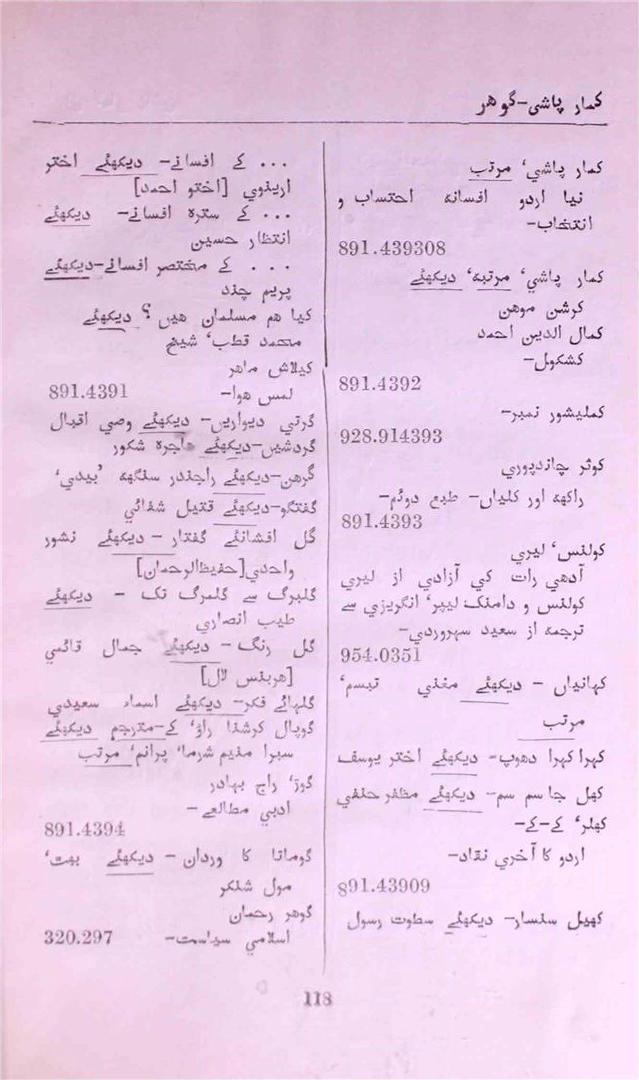 کمار پاشی-گوهر
کمار پاشي، مرتب
نیا اردو افسانه احتساب و
انتخاب-
891.439308
کمار پاشي، مرتبه، دیکھئے
کرشن موهن
کمال الدین احمد
کشکول-
891.4392
کملیشور نمبر-
928.914393
کوثر چاندپوري
راکھه اور کلیاں- طبع دوئم-
891.4393
کولنس، لیري
آدھي رات کي آزادي از لیري
کولنس و دامنک لیپر، انگریزي سے
ترجمه از سعید سهروردي-
954.0351
کہانیاں - دیکھئے مغني تبسم،
مرتب
کہرا کہرا دھوپ- دیکھئے اختر یوسف
کھل جا سم سم- دیکھئے مظفر حنفي
کھلر، کے-کے-
اردو کا آخري نقاد-
891.43909
کھیل سنسار- دیکھئے سطوت رسول
... کے افسانے- دیکھئے اختر
اورینوي [اختر احمد]
... کے ستره افسانے- دیکھئے
انتظار حسین
... کے مختصر افسانے-دیکھئے
پریم چند
کیا هم مسلمان هیں؟ دیکھئے
محمد قطب، شیخ
کیلاش ماهر
لمس هوا- 891.4391
گرتي دیواریں- دیکھئے وصي اقبال
گردشیں-دیکھئے هاجره شکور
گرهن-دیکھئے راجندر سنگھه 'بیدي'
گفتگو-دیکھئے قتیل شفائي
گل افشانئے گفتار - دیکھئے نشور
واحدي[حفیظ‌الرحمان]
گلبرگ سے گلمرگ تک - دیکھئے
طیب انصاري
گل رنگ- دیکھئے جمال قائمي
[هربنس لال]
گلہائے فکر- دیکھئے اسماء سعیدي
گوپال کرشنا راؤ، کے-مترجم دیکھئے
سبرا منیم شرما، پرانم، مرتب
گوڑ، راج بہادر
ادبي مطالعے-
891.4394
گوماتا کا وردان- دیکھئے بھت،
مول شنکر
گوهر رحمان
اسلامي سیاست- 320.297
118